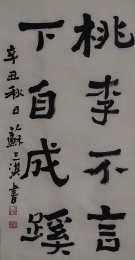 桃李不言
下自成蹊
辛丑秋日
蘇三淇書